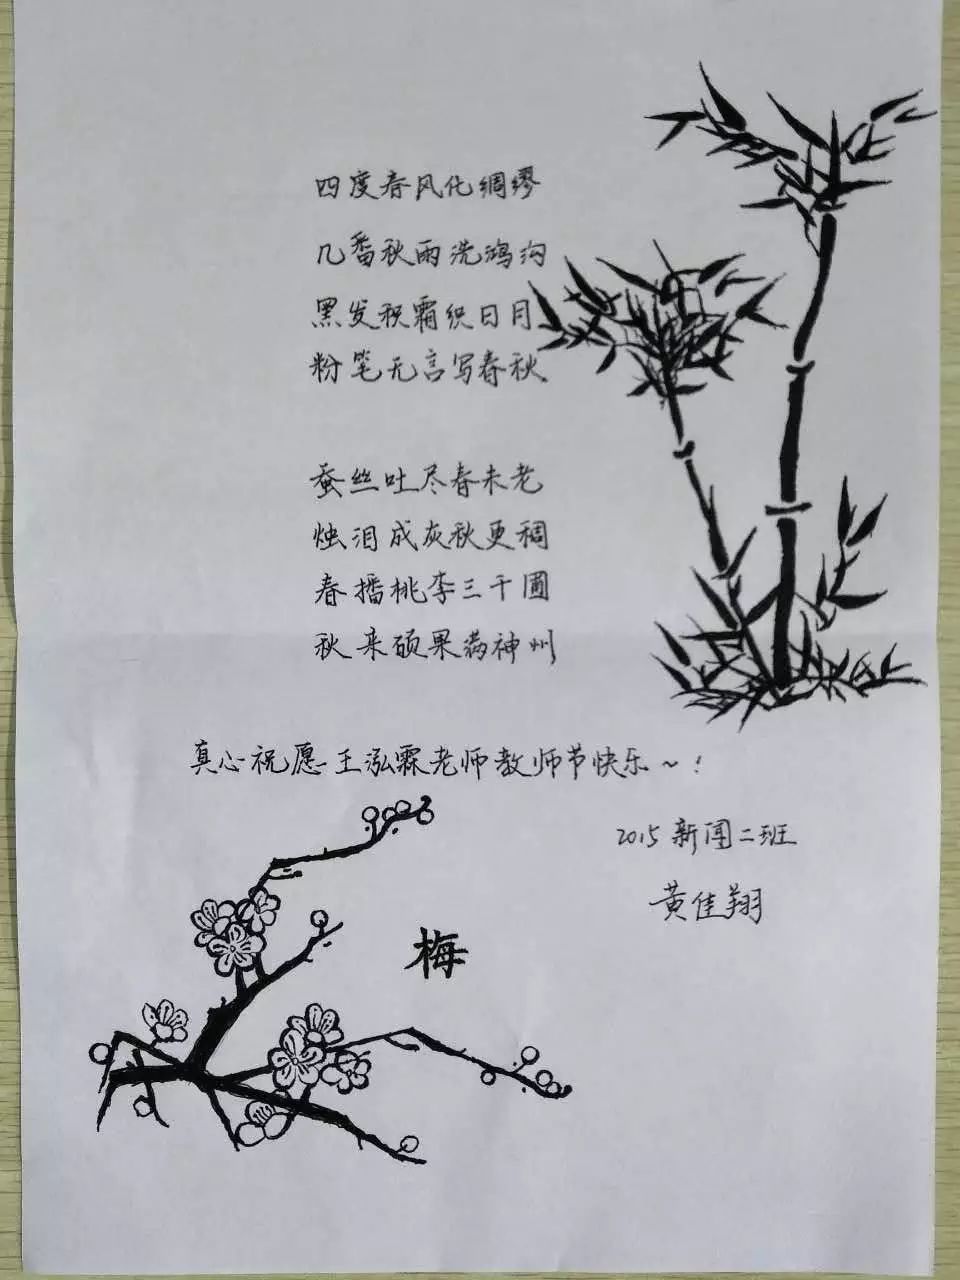 四度春风化绸缪
几番秋雨洗鸿沟
黑发积霜织日月
粉笔无言写春秋
蚕丝吐尽春未老
烛泪成灰秋更稠
春播桃李三千圃
秋来硕果满神州
真心祝愿王泓霖老师教师节快乐~!
2015新闻二班
黄佳翔
梅